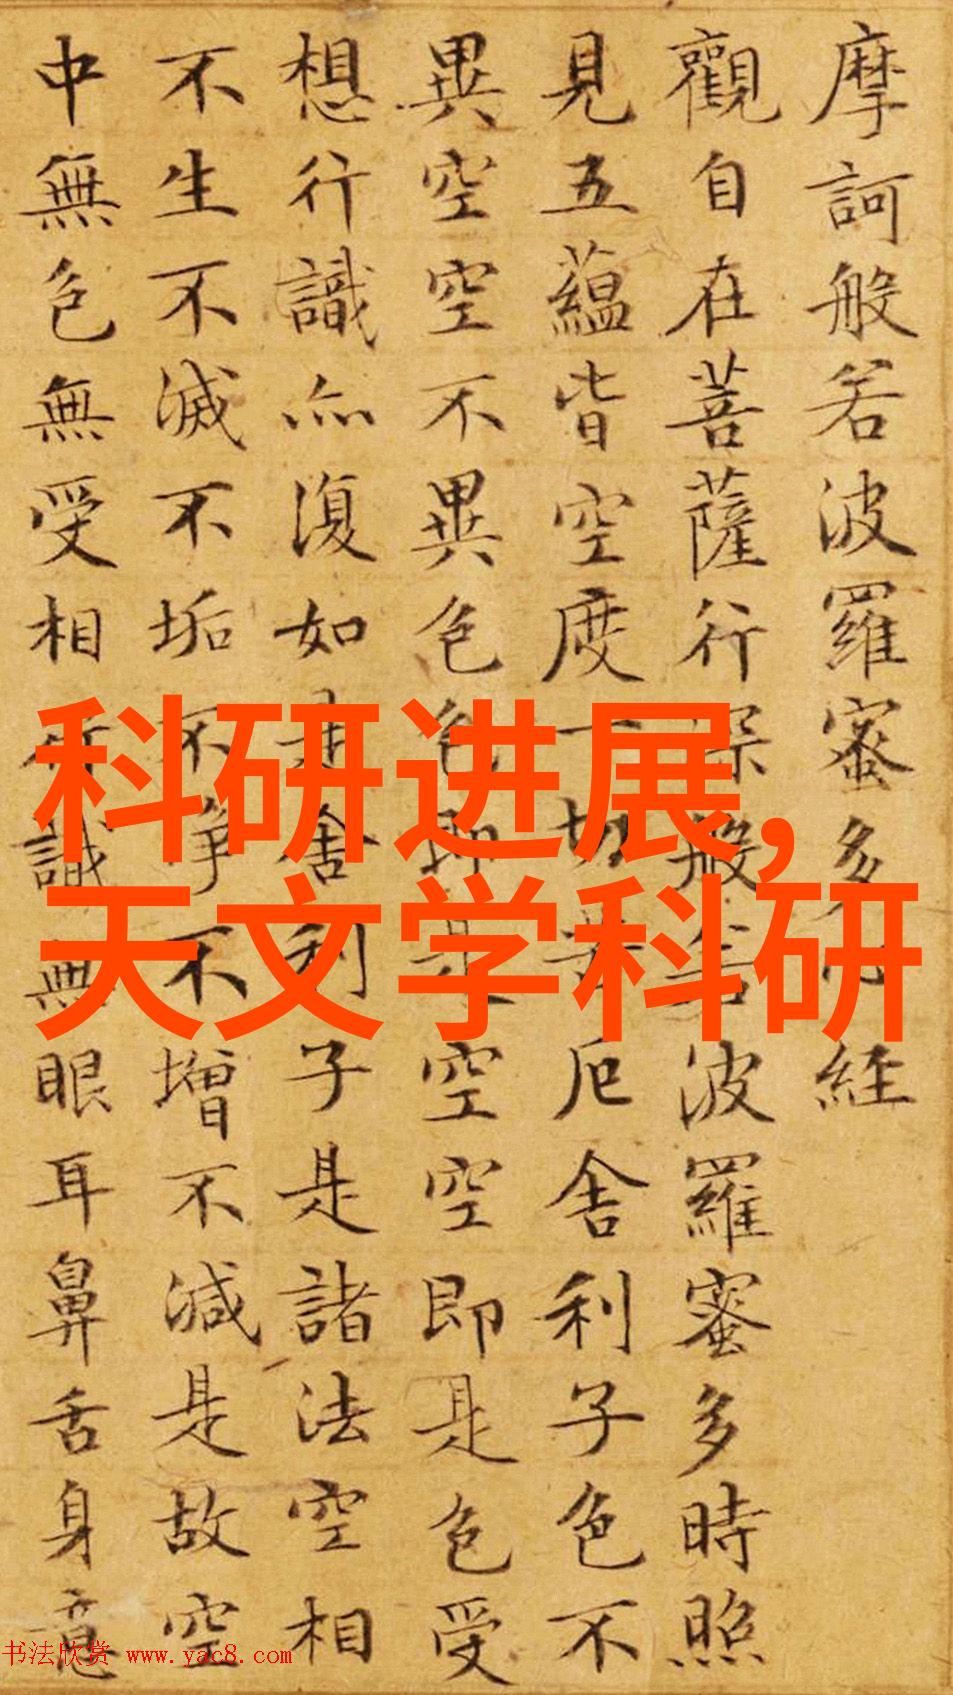 摩訶般若波羅蜜多心經
觀自在菩薩行深般若波羅蜜多時照
見五蘊皆空度一切苦厄舍利子色不
異空空不異色色即是空空即是色受
想行識亦復如是舍利子是諸法空相
不生不滅不垢不淨不增不減是故空
中無色無受相行識無眼耳鼻舌身意
科研进展,
天文学科研
书法欣赏 www.yac8.com